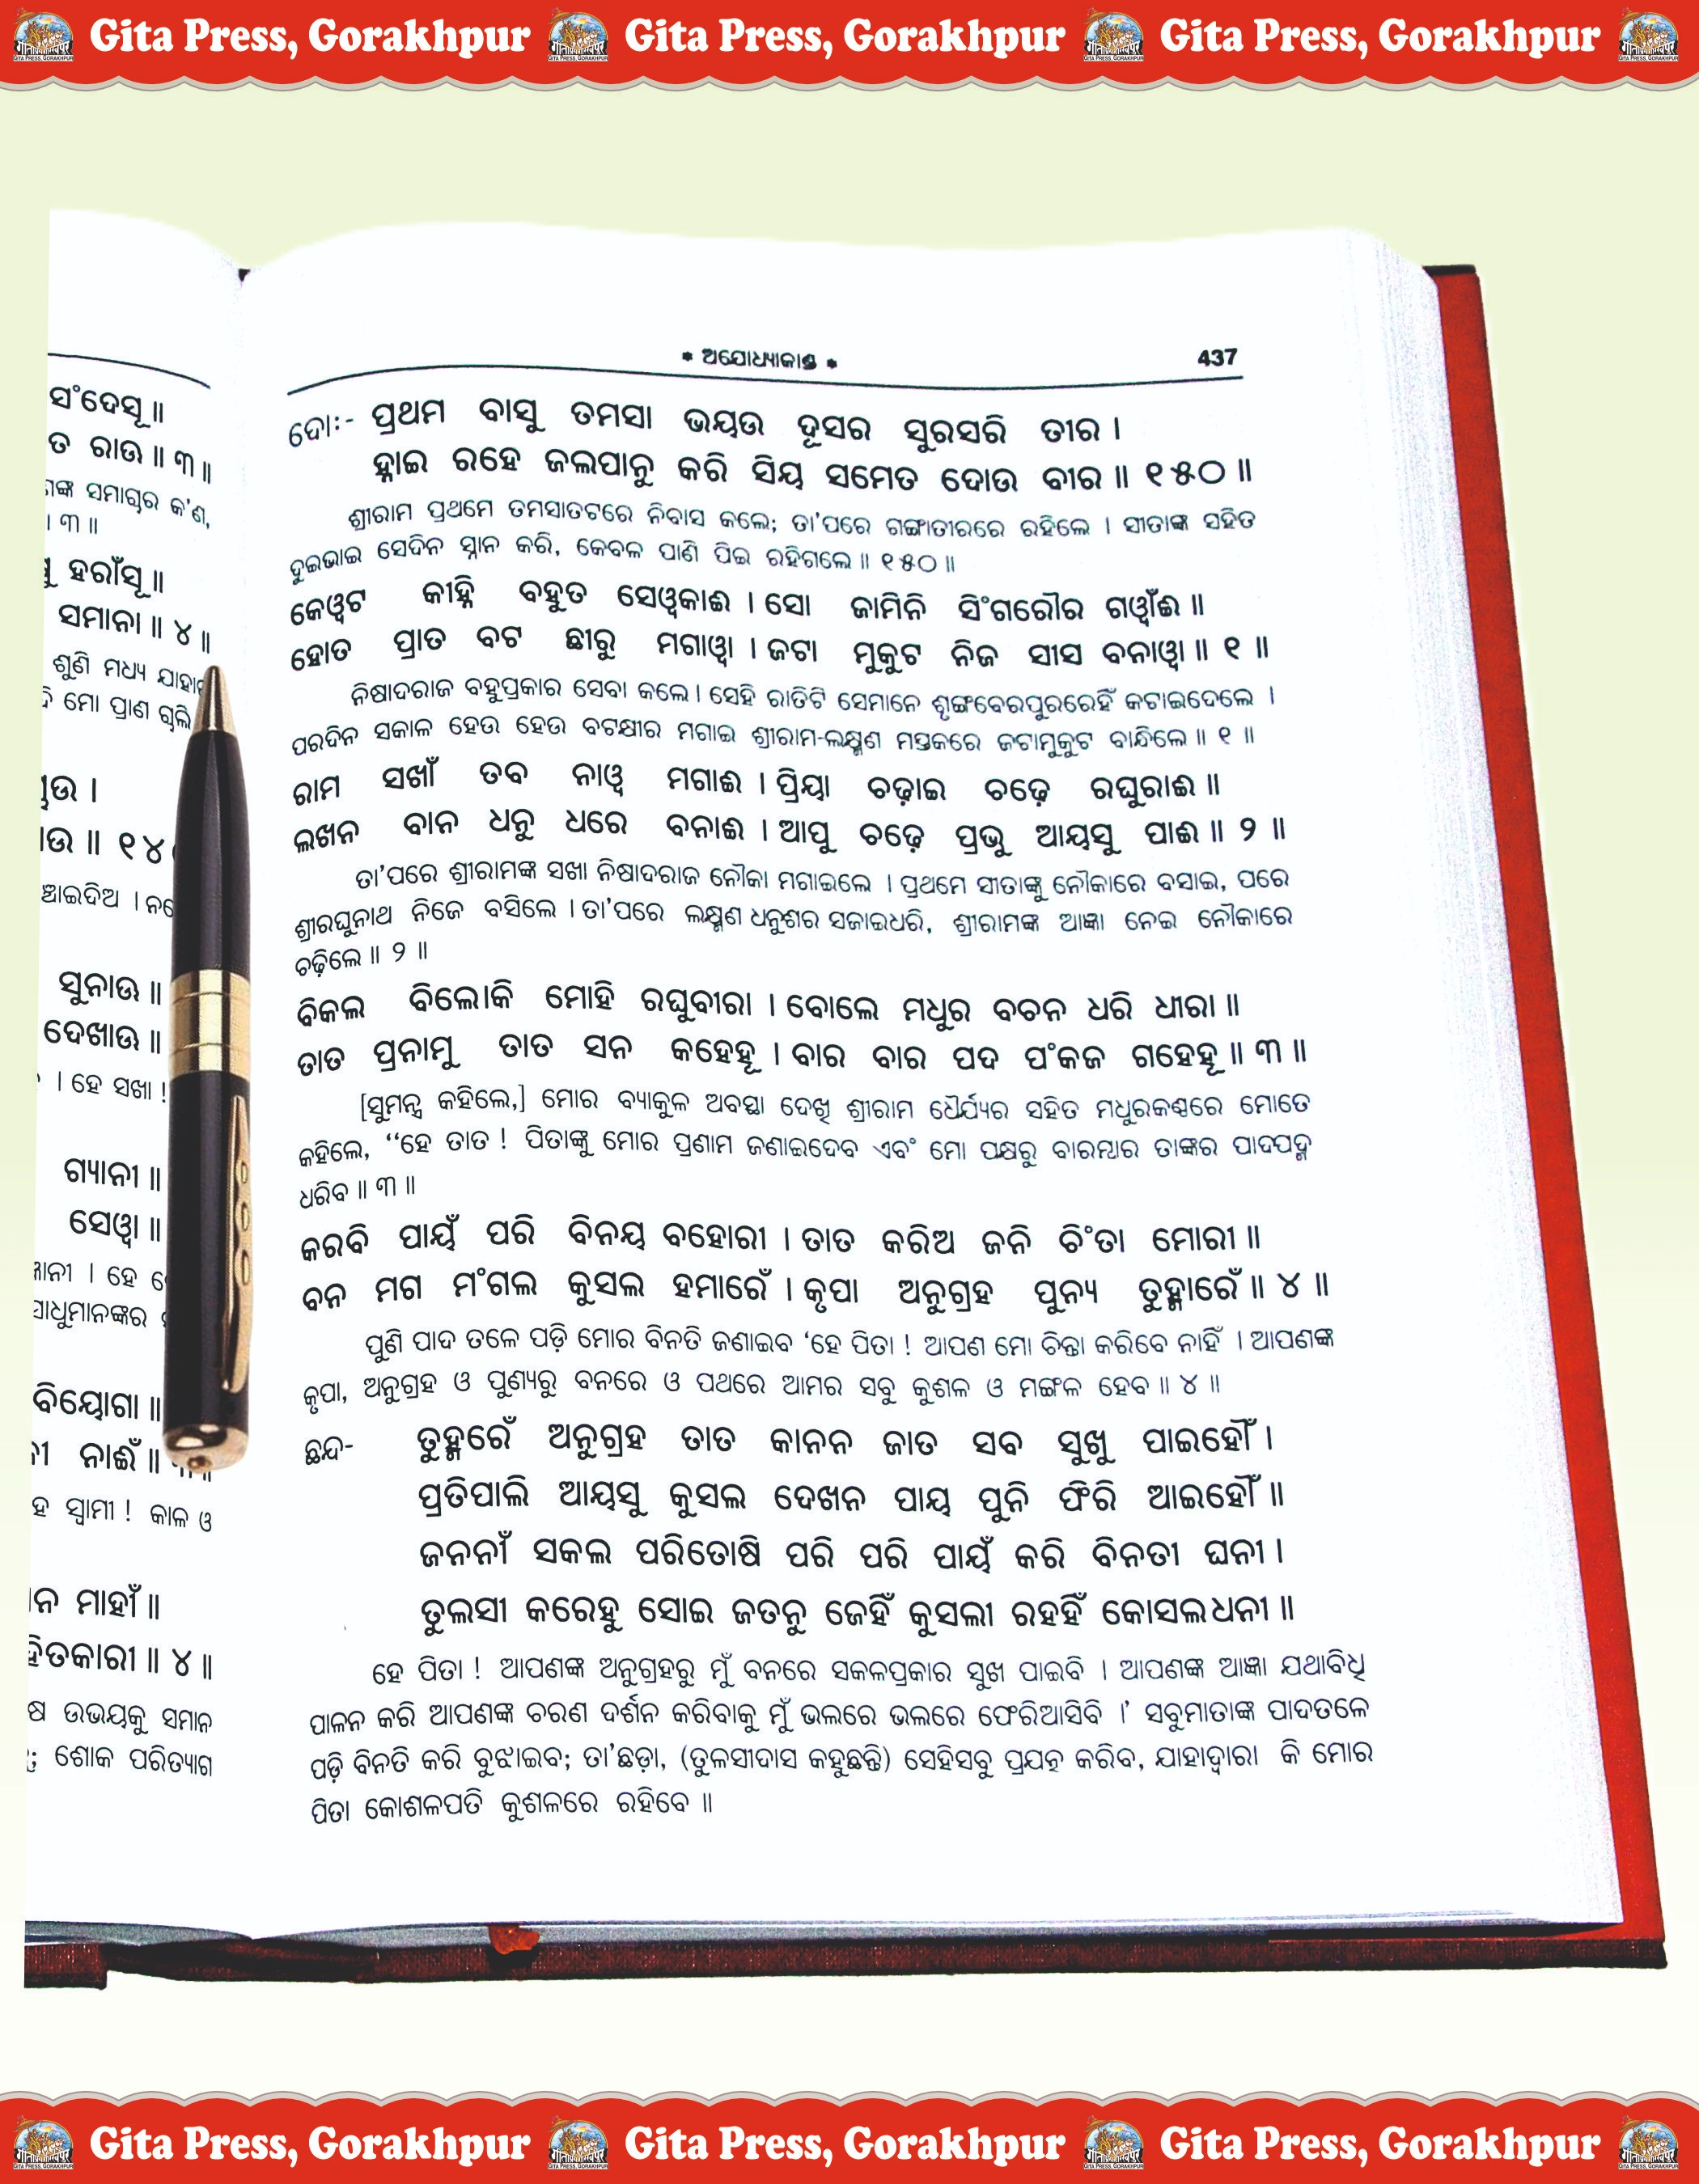 Gita Press, Gorakhpur Gita Press, Gorakhpur Gita Press, Gorakhpur
ସଂଦେସୂ ॥
ତ ରାଉ ॥ ୩ ॥
ସମାଚାର କ'ଣ,
। ୩ ॥
ହରାଁସୂ ॥
ସମାନା ॥ ୪ ॥
ଶୁଣି ମଧ୍ୟ
ମୋ ପ୍ରାଣ
ସୁନାଊ ॥
ଦେଖାଊ ॥
। ହେ ସଖା !
ଗ୍ୟାନୀ ॥
ସେୱା ॥
। ହେ
ସାଧୁମାନଙ୍କର
ବିୟୋଗା ॥
ନାଈଁ ॥
ହ ସ୍ୱାମୀ ! କାଳ ଓ
ନ ମାହୀଁ ॥
ହିତକାରୀ ॥ ୪ ॥
ଷ ଉଭୟକୁ ସମାନ
ଶୋକ ପରିତ୍ୟାଗ
* ଅଯୋଧ୍ୟାକାଣ୍ଡ * 437
ଦୋଃ- ପ୍ରଥମ ବାସୁ ତମସା ଭୟଉ ଦୂସର ସୁରସରି ତୀର ।
ହ୍ନାଇ ରହେ ଜଲପାନୁ କରି ସିୟ ସମେତ ଦୋଉ ବୀର ॥ ୧୫୦ ॥
ଶ୍ରୀରାମ ପ୍ରଥମେ ତମସାତଟରେ ନିବାସ କଲେ; ତା'ପରେ ଗଙ୍ଗାତୀରରେ ରହିଲେ । ସୀତାଙ୍କ ସହିତ
ଦୁଇଭାଇ ସେଦିନ ସ୍ନାନ କରି, କେବଳ ପାଣି ପିଇ ରହିଗଲେ ॥ ୧୫୦ ॥
କେୱଟ କୀହ୍ନି ବହୁତ ସେୱକାଈ । ସୋ ଜାମିନି ସିଂଗରୌର ଗୱାଁଈ ॥
ହୋତ ପ୍ରାତ ବଟ ଛୀରୁ ମଗାୱା । ଜଟା ମୁକୁଟ ନିଜ ସୀସ ବନାୱା ॥ ୧ ॥
ନିଷାଦରାଜ ବହୁପ୍ରକାର ସେବା କଲେ । ସେହି ରାତିଟି ସେମାନେ ଶୃଙ୍ଗବେରପୁରରେହିଁ କଟାଇଦେଲେ ।
ପରଦିନ ସକାଳ ହେଉ ହେଉ ବଟକ୍ଷୀର ମଗାଇ ଶ୍ରୀରାମ-ଲକ୍ଷ୍ମଣ ମସ୍ତକରେ ଜଟାମୁକୁଟ ବାନ୍ଧିଲେ ॥ ୧ ॥
ରାମ ସଖାଁ ତବ ନାୱ ମଗାଈ । ପ୍ରିୟା ଚଢ଼ାଇ ଚଢ଼େ ରଘୁରାଈ ॥
ଲଖନ ବାନ ଧନୁ ଧରେ ବନାଈ । ଆପୁ ଚଢ଼େ ପ୍ରଭୁ ଆୟସୁ ପାଈ ॥ ୨ ॥
ତା'ପରେ ଶ୍ରୀରାମଙ୍କ ସଖା ନିଷାଦରାଜ ନୌକା ମଗାଇଲେ । ପ୍ରଥମେ ସୀତାଙ୍କୁ ନୌକାରେ ବସାଇ, ପରେ
ଶ୍ରୀରଘୁନାଥ ନିଜେ ବସିଲେ । ତା'ପରେ ଲକ୍ଷ୍ମଣ ଧନୁଶର ସଜାଇଧରି, ଶ୍ରୀରାମଙ୍କ ଆଜ୍ଞା ନେଇ ନୌକାରେ
ଚଢ଼ିଲେ ॥ ୨ ॥
ବିକଲ ବିଲୋକି ମୋହି ରଘୁବୀରା । ବୋଲେ ମଧୁର ବଚନ ଧରି ଧୀରା ॥
ତାତ ପ୍ରନାମୁ ତାତ ସନ କହେହୂ । ବାର ବାର ପଦ ପଂକଜ ଗହେହୂ ॥ ୩ ॥
[ସୁମନ୍ତ୍ର କହିଲେ,] ମୋର ବ୍ୟାକୁଳ ଅବସ୍ଥା ଦେଖି ଶ୍ରୀରାମ ଧୈର୍ଯ୍ୟର ସହିତ ମଧୁରକଣ୍ଠରେ ମୋତେ
କହିଲେ, “ହେ ତାତ ! ପିତାଙ୍କୁ ମୋର ପ୍ରଣାମ ଜଣାଇଦେବ ଏବଂ ମୋ ପକ୍ଷରୁ ବାରମ୍ବାର ତାଙ୍କର ପାଦପଦ୍ମ
ଧରିବ ॥ ୩ ॥
କରବି ପାୟଁ ପରି ବିନୟ ବହୋରୀ । ତାତ କରିଅ ଜନି ଚିଂତା ମୋରୀ ॥
ବନ ମଗ ମଂଗଲ କୁସଲ ହମାରେଁ । କୃପା ଅନୁଗ୍ରହ ପୁନ୍ୟ ତୁହ୍ମାରେଁ ॥ ୪ ॥
ପୁଣି ପାଦ ତଳେ ପଡ଼ି ମୋର ବିନତି ଜଣାଇବ ‘ହେ ପିତା ! ଆପଣ ମୋ ଚିନ୍ତା କରିବେ ନାହିଁ । ଆପଣଙ୍କ
କୃପା, ଅନୁଗ୍ରହ ଓ ପୁଣ୍ୟରୁ ବନରେ ଓ ପଥରେ ଆମର ସବୁ କୁଶଳ ଓ ମଙ୍ଗଳ ହେବ ॥ ୪ ॥
ଛନ୍ଦ- ତୁହ୍ମରେଁ ଅନୁଗ୍ରହ ତାତ କାନନ ଜାତ ସବ ସୁଖୁ ପାଇହୌଁ ।
ପ୍ରତିପାଲି ଆୟସୁ କୁସଲ ଦେଖନ ପାୟ ପୁନି ଫିରି ଆଇହୌଁ ॥
ଜନନୀଁ ସକଲ ପରିତୋଷି ପରି ପରି ପାୟଁ କରି ବିନତୀ ଘନୀ ।
ତୁଲସୀ କରେହୁ ସୋଇ ଜତନୁ ଜେହିଁ କୁସଲୀ ରହହିଁ କୋସଲଧନୀ ॥
ହେ ପିତା ! ଆପଣଙ୍କ ଅନୁଗ୍ରହରୁ ମୁଁ ବନରେ ସକଳପ୍ରକାର ସୁଖ ପାଇବି । ଆପଣଙ୍କ ଆଜ୍ଞା ଯଥାବିଧି
ପାଳନ କରି ଆପଣଙ୍କ ଚରଣ ଦର୍ଶନ କରିବାକୁ ମୁଁ ଭଲରେ ଭଲରେ ଫେରିଆସିବି ।’ ସବୁମାତାଙ୍କ ପାଦତଳେ
ପଡ଼ି ବିନତି କରି ବୁଝାଇବ; ତା'ଛଡ଼ା, (ତୁଳସୀଦାସ କହୁଛନ୍ତି) ସେହିସବୁ ପ୍ରଯତ୍ନ କରିବ, ଯାହାଦ୍ୱାରା କି ମୋର
ପିତା କୋଶଳପତି କୁଶଳରେ ରହିବେ ॥
Gita Press, Gorakhpur Gita Press, Gorakhpur Gita Press, Gorakhpur